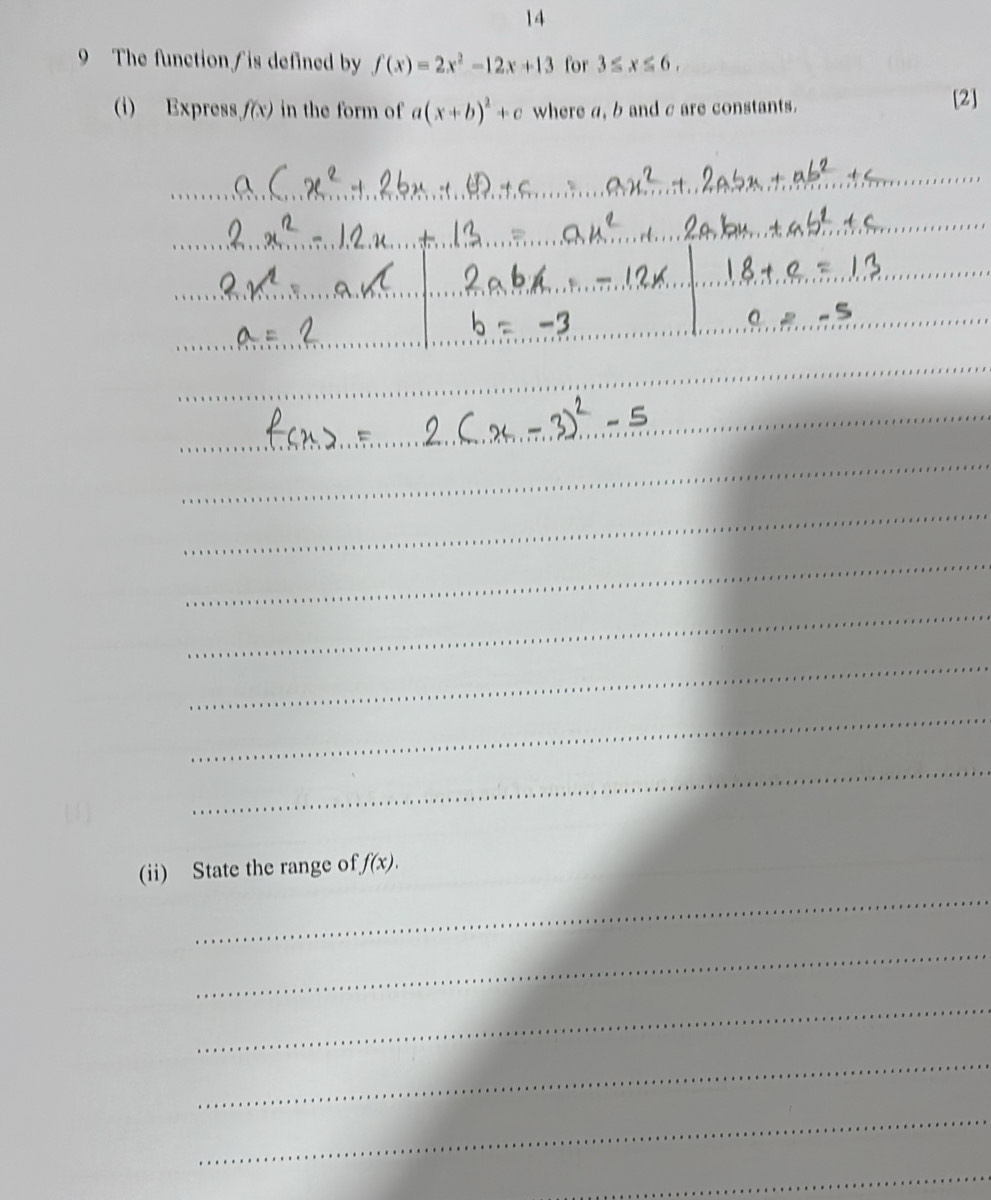 14
9 The function f is defined by f(x) = 2x² − 12x + 13 for 3 ≤ x ≤ 6.
(i) Express f(x) in the form of a(x + b)² + c where a, b and c are constants. [2]
a(x² + 2bx + b²) + c = ax² + 2abx + ab² + c
2x² − 12x + 13 = ax² + 2abx + ab² + c
2x² = ax² | 2abx = −12x | 18 + c = 13
a = 2 | b = −3 | c = −5
f(x) = 2(x − 3)² − 5
(ii) State the range of f(x).